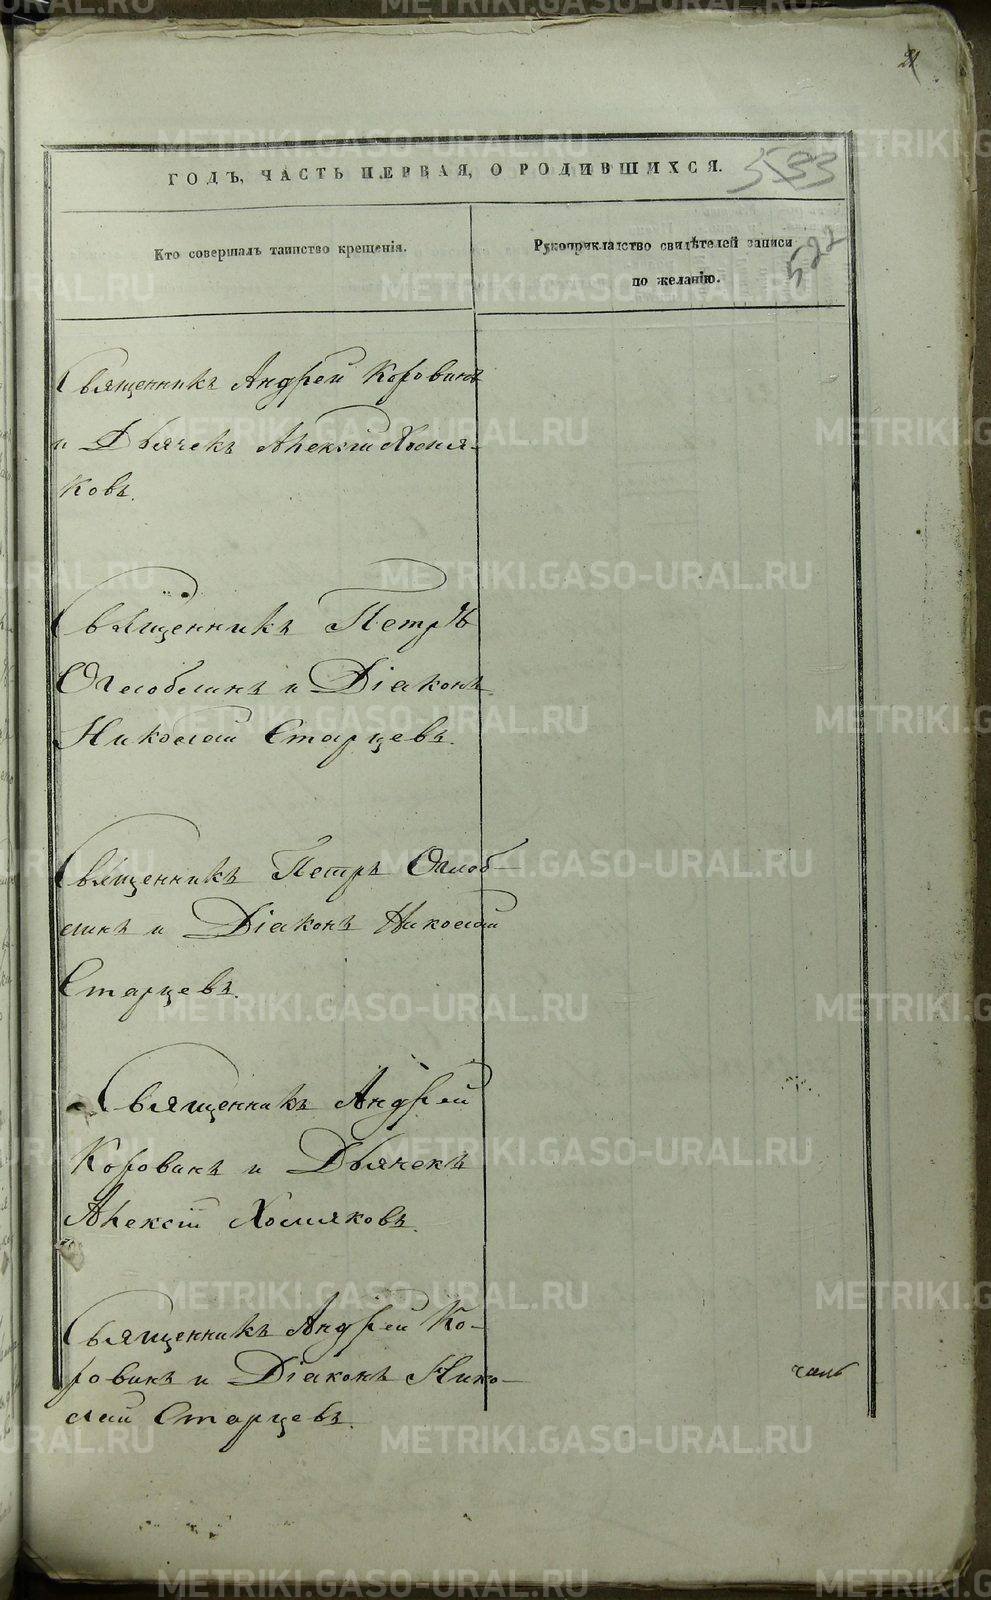 21
ГОДЪ, ЧАСТЬ ПЕРВАЯ, О РОДИВШИХСЯ.
533
Кто совершалъ таинство крещенія.
Рукоприкладство свидѣтелей записи
по желанію.
522
Священникъ Андрей Коровинъ
и Дьячекъ Алексій Хомя-
ковъ.
Священникъ Петръ
Оглоблинъ и Діаконъ
Николай Старцевъ.
Священникъ Петръ Оглоб-
линъ и Діаконъ Николай
Старцевъ.
Священникъ Андрей
Коровинъ и Дьячекъ
Алексій Хомяковъ.
Священникъ Андрей Ко-
ровинъ и Діаконъ Нико-
лай Старцевъ.
METRIKI.GASO-URAL.RU